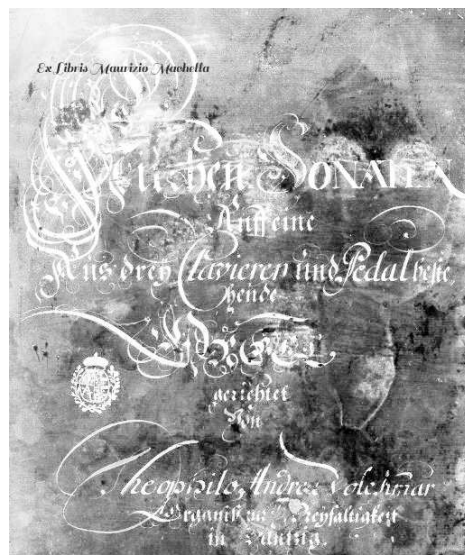 Ex Libris Maurizio Machella
SONATEN
Auff eine
Aus drey Clavieren und Pedal beste,
hende
ORGEL
gerichtet
Von
Theophilo, Andrea Volckmar
Organist zur Dreyfaltigkeit
in Dantzig.